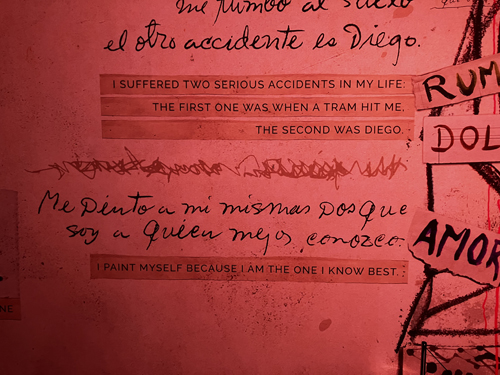 me tumbo al suelo
el otro accidente es Diego.
I SUFFERED TWO SERIOUS ACCIDENTS IN MY LIFE:
THE FIRST ONE WAS WHEN A TRAM HIT ME,
THE SECOND WAS DIEGO.
RUM
DOL
Me Pinto a mi misma Pos que
soy a quien mejor conozco.
AMOR
I PAINT MYSELF BECAUSE I AM THE ONE I KNOW BEST.
NE